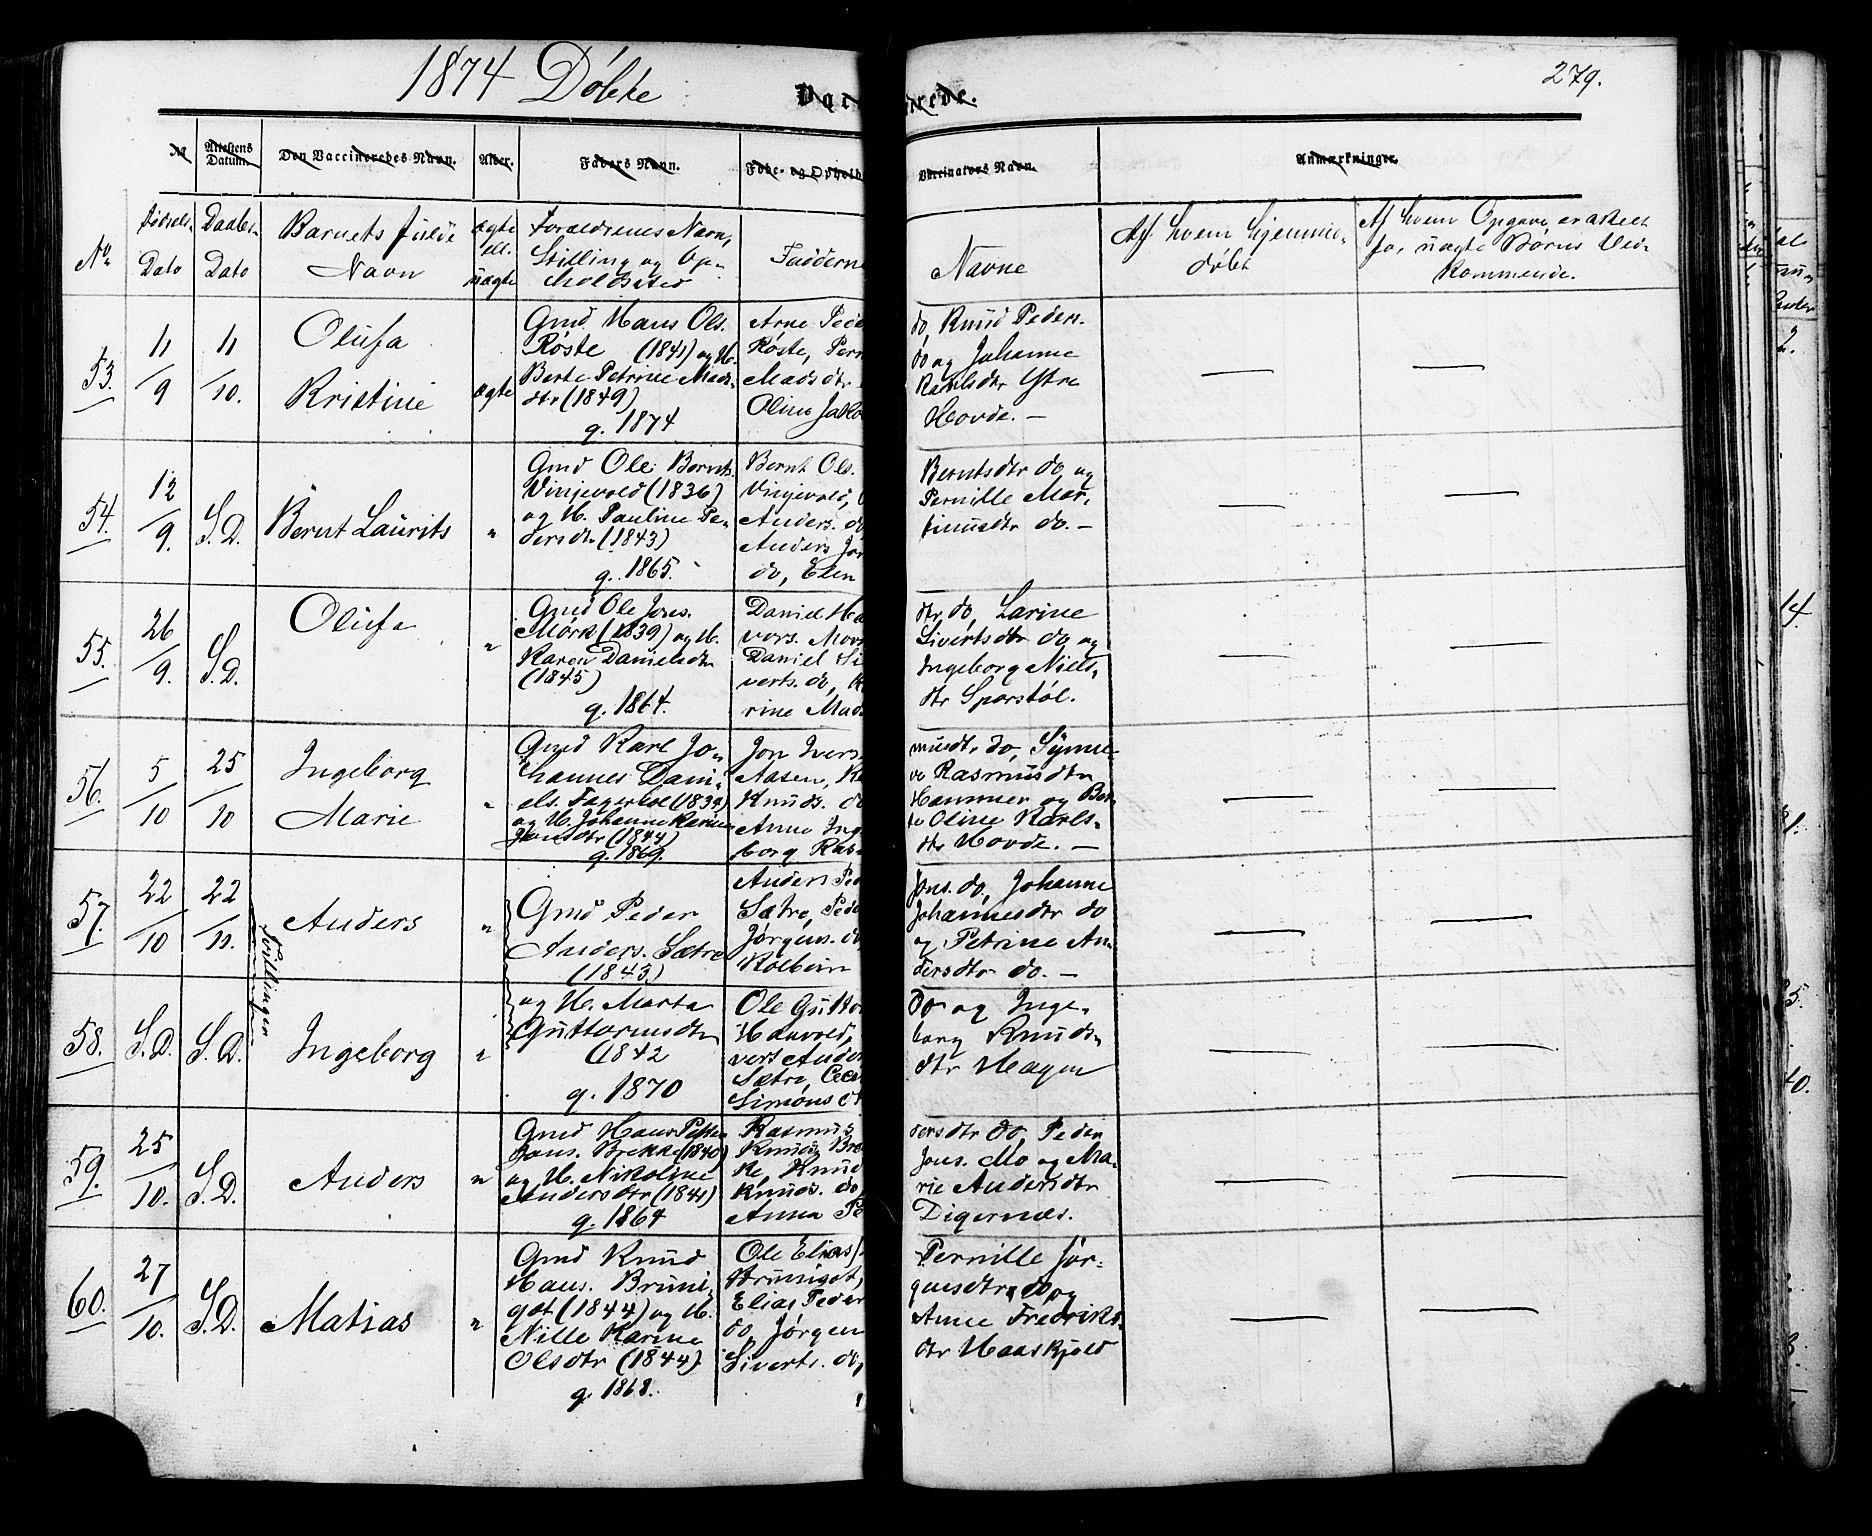 1874 Döbte
279.
Vac
rede.
№
Attestens Datum.
Den Vaccineredes Navn.
Alder.
Faders Navn.
Føde- og Ophold
Vaccinators Navn.
Anmærkninger.
No
Födsels-
Dato
Daabs-
Dato
Barnets fulde
Navn
ægte
ell.
uægte
Forældrenes Navn,
Stilling og Op-
holdssted
Faddernes
Navne
Af hvem hjemme-
döbt
Af hvem Opgave er afleet
for uægte Börns Ved-
kommende.
53.
11/9
11/10.
Olufa
Kristine
ægte
Gmd Hans Ols.
Röste (1841) og H.
Berte Petrine Mads-
dtr (1849)
g. 1874
Arne Pede
Röste, Pern
Madsdtr
Oline Jako
do, Knud Peders.
do og Johanne
Karlsdtr Ytre
Hovde. —
54.
12/9.
S.D.
Bernt Laurits
"
Gmd Ole Bernts.
Vinjevold (1836)
og H. Pauline Pe-
dersdtr (1843)
g. 1865.
Bernt Ols.
Vinjevold,
Anders. do
Anders Jör
do, Elen
Berntsdtr do og
Pernille Mar-
tinusdtr do. —
55.
26/9.
S.D.
Olufa
"
Gmd Ole Jons.
Mörk (1839) og H.
Karen Danielsdtr
(1845)
g. 1864.
Daniel Ha
vors. Mörk
Daniel Si
verts. do, K
rine Mads
dtr do, Larine
Sivertsdtr do og
Ingeborg Niels-
dtr Sporstöl.
56.
5/10
25/10
Ingeborg
Marie
"
Gmd Karl Jo-
hannes Dani-
els. Fagerhol (1839)
og H. Johanne Karine
Jonsdtr (1844)
g. 1869.
Jon Ivers
Aasen, K
Knuds. do
Anne Inge
borg Ras
musdtr do, Synne-
ve Rasmusdtr
Hammer og Ber-
te Oline Karls-
dtr Hovde. —
57.
22/10
22/11.
Tvillinger
Anders
"
Gmd Peder
Anders. Sætre
(1843)
Anders Ped
Sætre, Pede
Jörgens. do
Kolbein
Jons. do, Johanne
Johannesdtr do
og Petrine An-
dersdtr do. —
58.
S.D.
S.D.
Ingeborg
"
og H. Marta
Guttormsdtr
(1842
g. 1870
Ole Guttor
Hanvold,
vert Ander
Sætre, Ceci
Simonsdt
do og Inge-
borg Knuds-
dtr Hagen
59.
25/10.
S.D.
Anders
"
Gmd Hans Petter
Jons. Brekke (1840)
og H. Nikoline
Andersdtr (1841)
g. 1864
Rasmus
Knuds. Brek
ke, Knud
Knuds. do,
Anna Pe
dersdtr do, Peder
Jons. Mo og Ma-
rie Andersdtr
Digernæs.
60.
27/10.
S.D.
Matias
"
Gmd Knud
Hans. Bruni-
got (1844) og H.
Nille Karine
Olsdtr (1844)
g. 1868.
Ole Elias
Brunigot,
Elias Peder
do, Jörgen
Siverts. do,
Pernille Jör-
gensdtr do, og
Anne Fredriks-
dtr Haaskjold